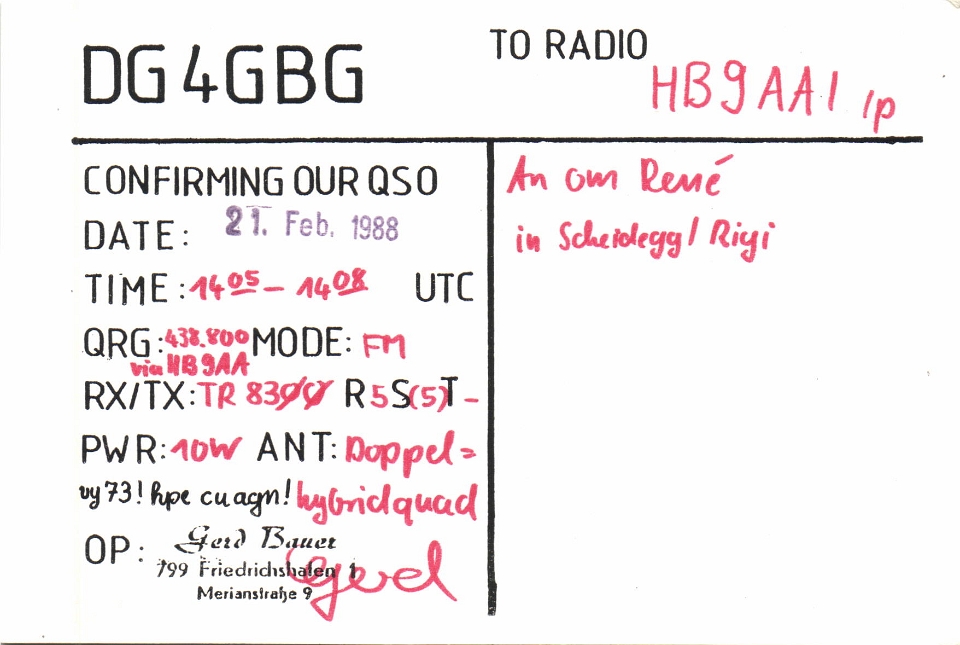 DG4GBG
TO RADIO
HB9AAI /p
CONFIRMING OUR QSO
DATE: 21. Feb. 1988
TIME: 14⁰⁵ – 14⁰⁸ UTC
QRG: 438.800 MODE: FM
via HB9AA
RX/TX: TR 8300 R5S(5)T –
PWR: 10W ANT: Doppel=
vy 73! hpe cu agn! hybridquad
OP: Gerd Bauer
799 Friedrichshafen 1
Merianstraße 9
Gerd
An om René
in Scheidegg/Rigi